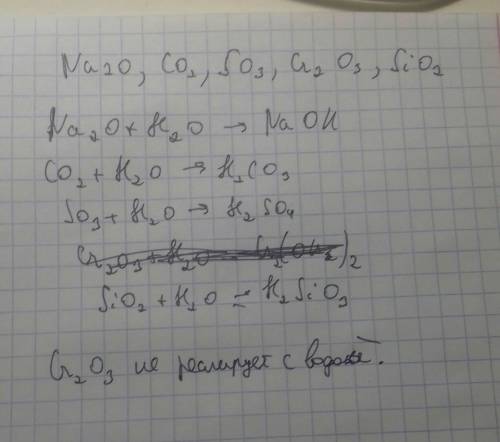 Na2O, CO2, SO3, Cr2O3, SiO2
Na2O + H2O → NaOH
CO2 + H2O → H2CO3
SO3 + H2O → H2SO4
Cr2O3 + H2O
SiO2 + H2O = H2SiO3
Cr2O3 не реагирует с водой.